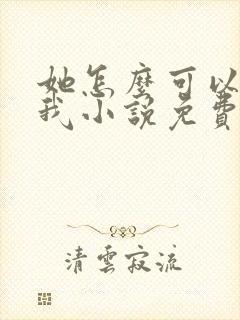 她怎麼可以
我小說免費
清雲寂流